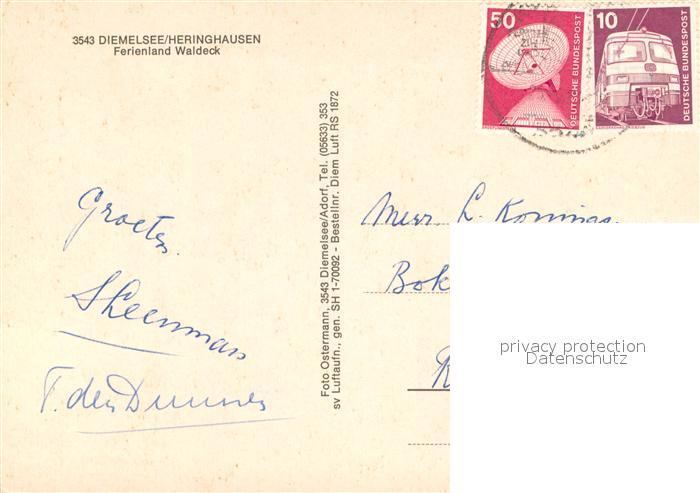 3543 DIEMELSEE/HERINGHAUSEN
Ferienland Waldeck
50
DEUTSCHE BUNDESPOST
10
DEUTSCHE BUNDESPOST
Groeten.
T. den
Foto Ostermann, 3543 Diemelsee/Adorf, Tel. (05633) 353
sv Luftaufn., gen. SH 1-70092 - Bestellnr. Diem Luft RS 1872
L. Konings
Bok
privacy protection
Datenschutz